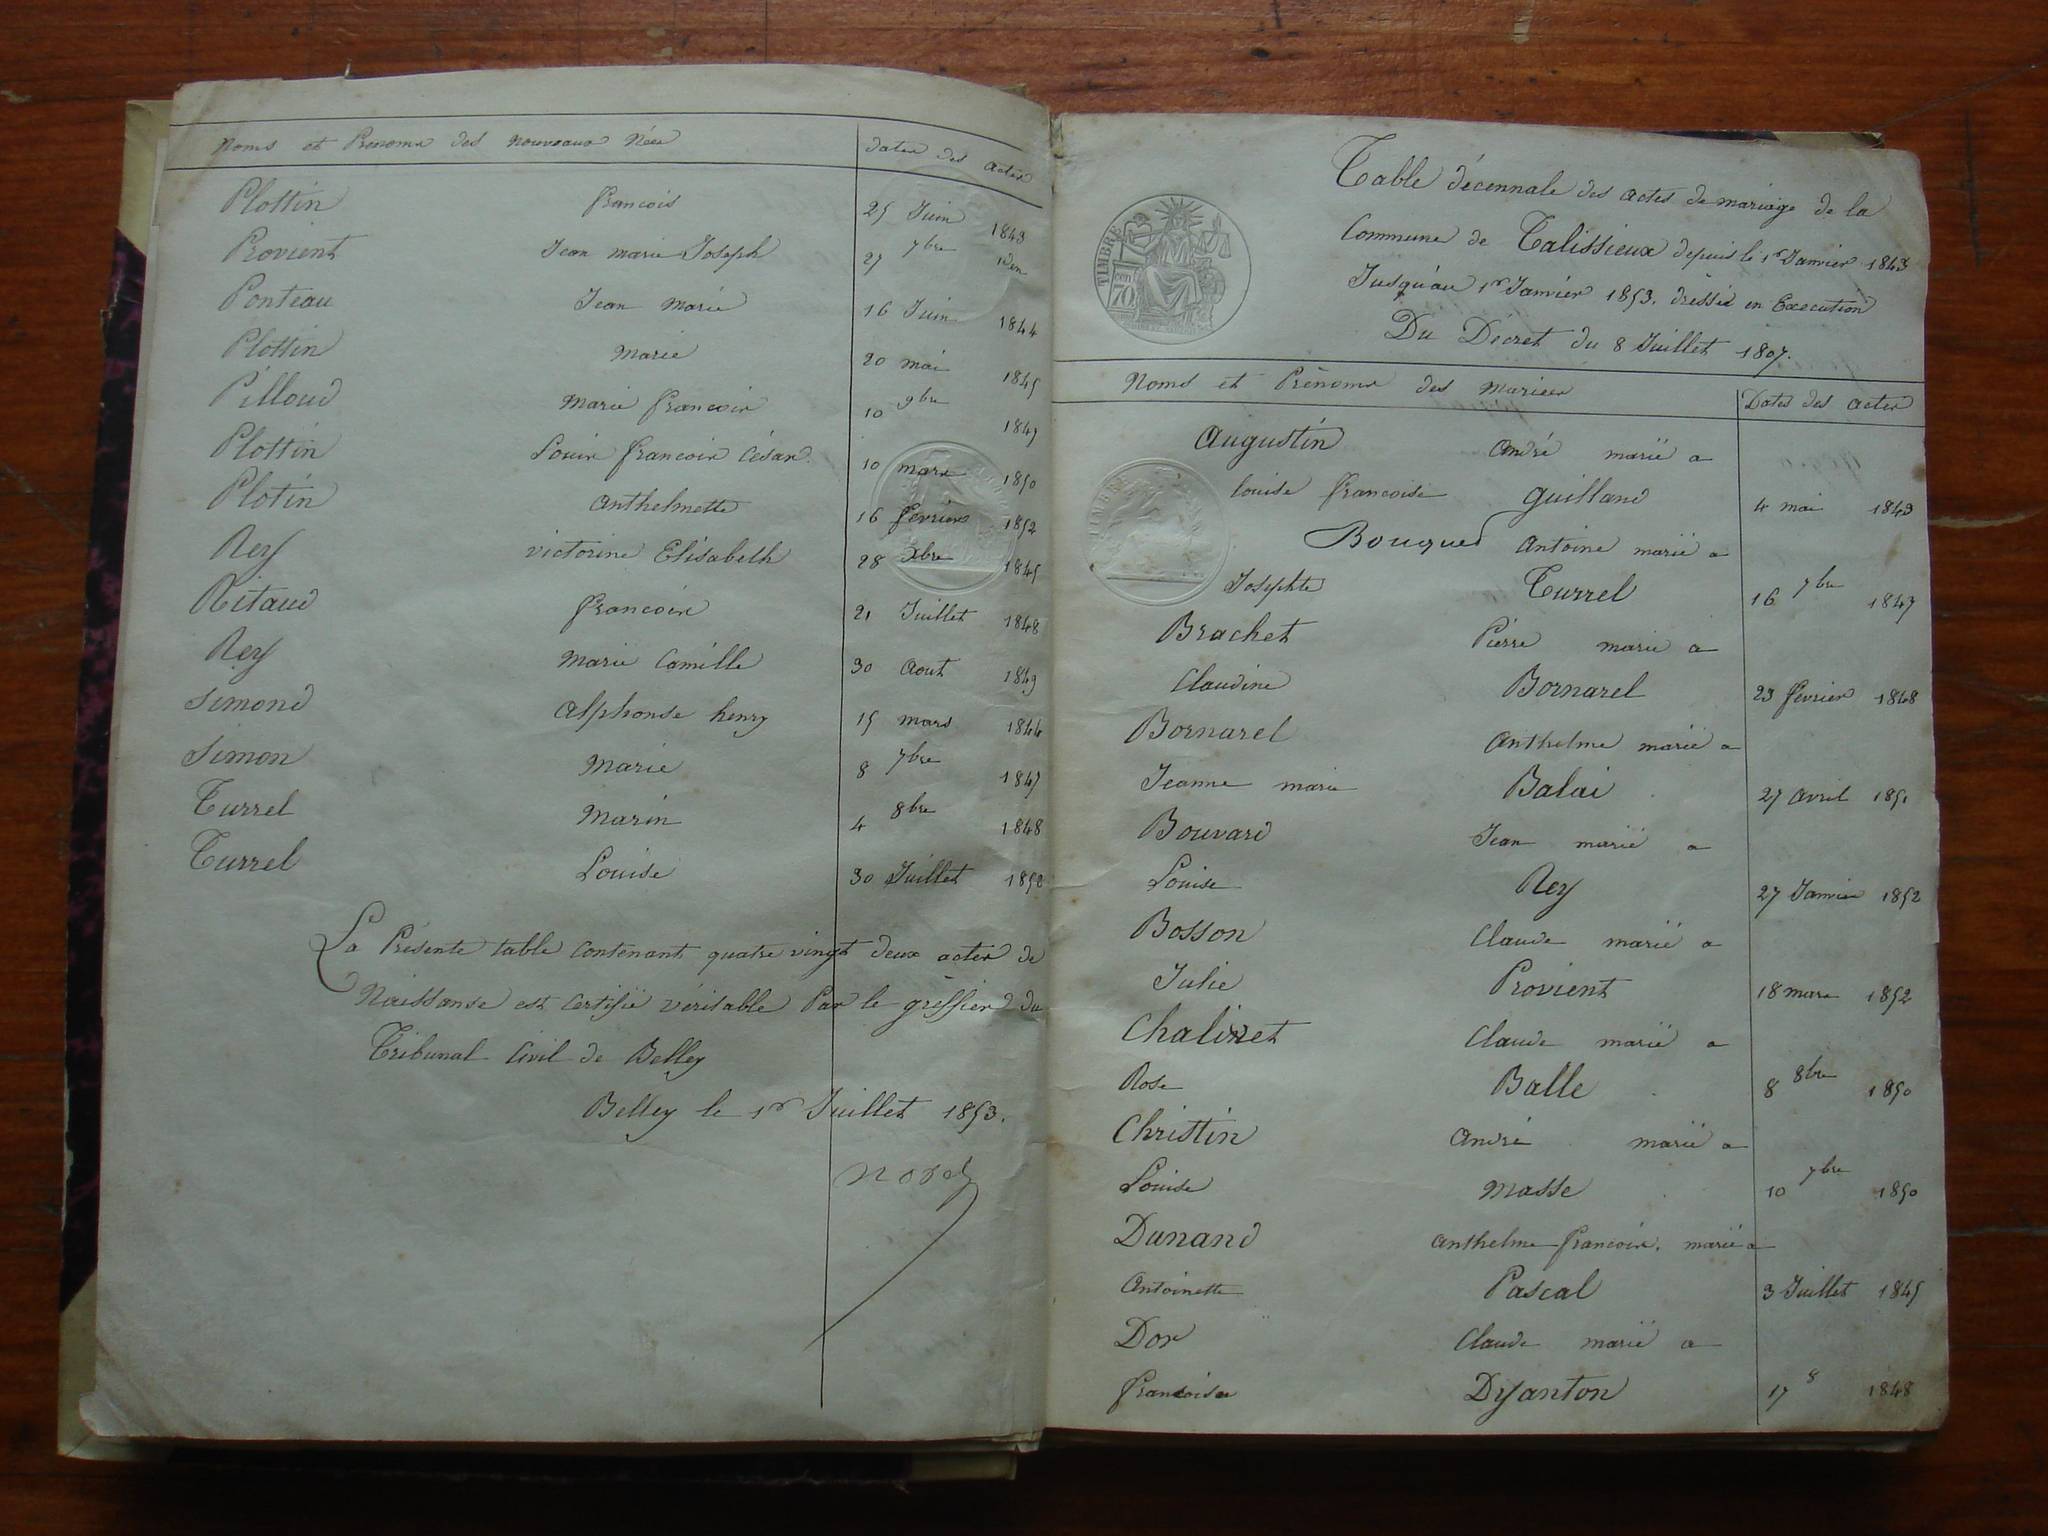 Noms et Prénoms des Nouveaux Nées dates des actes
Plottin françois 25 Juin 1843
Provient Jean marie Joseph 27 7bre idem
Ponteau Jean Marie 16 Juin 1844
Plottin Marie 20 mai 1845
Pilloud Marie françois 10 9bre 1847
Plottin Louis françois César. 10 mars 1850
Plotin anthelmette 16 février 1852
Rey victorine Elisabeth 28 Xbre 1845
Ritaud françois 21 Juillet 1848
Rey Marie Camille 30 Aout 1849
Simond Alphonse henry 15 mars 1844
Simon Marie 8 7bre 1847
Turrel Marin 4 8bre 1848
Turrel Louise 30 Juillet 1852
La Présente table contenant quatre vingt deux actes de
Naissanse est certifié véritable Par le greffier du
Tribunal Civil de Belley
Belley le 1er Juillet 1853.
Table décennale des actes de mariage de la
Commune de Talissieux depuis le 1er Janvier 1843
Jusqu'au 1er Janvier 1853. dressée en Execution
Du Décret du 8 Juillet 1807.
TIMBRE
70
TIMBRE
Noms et Prénoms des Mariées Dates des actes
Augustin André marié a
louise françoise guilland 4 mai 1843
Bouqued Antoine marié a
Josephte Turrel 16 7bre 1847
Brachet Pierre marié a
Claudine Bornarel 23 février 1848
Bornarel Anthelme marié a
Jeanne marie Balai 27 Avril 1851
Bouvard Jean marié a
Louise Rey 27 Janvier 1852
Bosson Claude marié a
Julie Provient 18 mars 1852
Chalinet Claude marié a
Rose Balle 8 8bre 1850
Christin André marié a
Louise Masse 10 7bre 1850
Dunand Anthelme françois. marié a
Antoinette Pascal 3 Juillet 1845
Dor Claude marié a
françoise Dyanton 17 8 1848